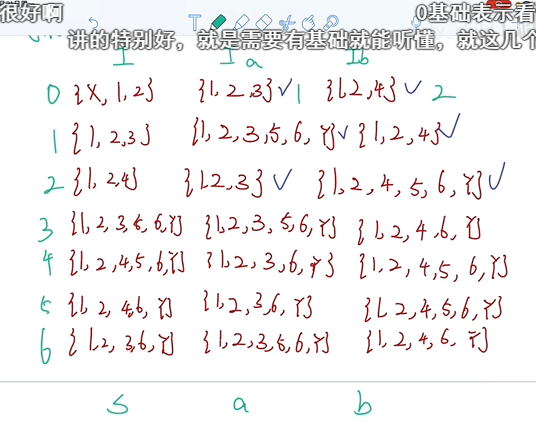 很好啊 0基础表示看
讲的特别好，就是需要有基础就能听懂，就这几个
I Ia Ib
0 {X, 1, 2} {1, 2, 3} ✓ 1 {1, 2, 4} ✓ 2
1 {1, 2, 3} {1, 2, 3, 5, 6, Y} ✓ {1, 2, 4} ✓
2 {1, 2, 4} {1, 2, 3} ✓ {1, 2, 4, 5, 6, Y} ✓
3 {1, 2, 3, 5, 6, Y} {1, 2, 3, 5, 6, Y} {1, 2, 4, 6, Y}
4 {1, 2, 4, 5, 6, Y} {1, 2, 3, 6, Y} {1, 2, 4, 5, 6, Y}
5 {1, 2, 4, 6, Y} {1, 2, 3, 6, Y} {1, 2, 4, 5, 6, Y}
6 {1, 2, 3, 6, Y} {1, 2, 3, 5, 6, Y} {1, 2, 4, 6, Y}
S a b